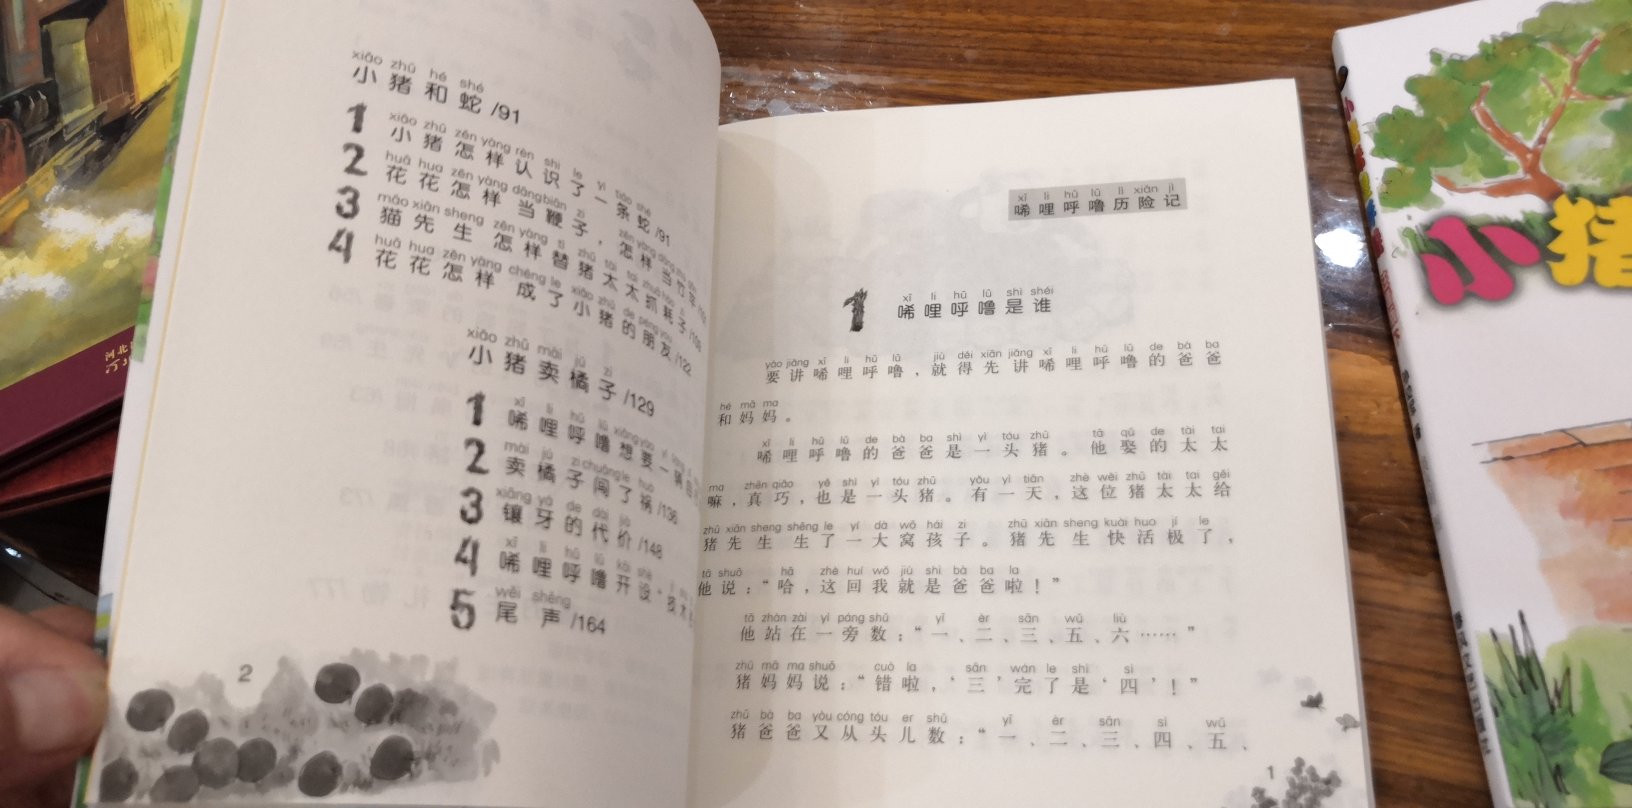 xiǎo zhū hé shé
小猪和蛇 /91
xiǎo zhū zěn yàng rèn shi le yì tiáo shé
1 小猪怎样认识了一条蛇 /91
huā hua zěn yàng dāng biān zi
2 花花怎样当鞭子，怎样当竹竿
māo xiān sheng zěn yàng tì zhū tài tai zhuā hào zi
3 猫先生怎样替猪太太抓耗子 /109
huā hua zěn yàng chéng le xiǎo zhū de péng you
4 花花怎样成了小猪的朋友 /122
xiǎo zhū mài jú zi
小猪卖橘子 /129
xī li hū lū xiǎng yào
1 唏哩呼噜想要一辆
mài jú zi chuǎng le huò
2 卖橘子闯了祸 /136
xiāng yá de dài jià
3 镶牙的代价 /148
xī li hū lū kāi shè
4 唏哩呼噜开设
wěi shēng
5 尾声 /164
2
xī li hū lū lì xiǎn jì
唏哩呼噜历险记
xī li hū lū shì shéi
1 唏哩呼噜是谁
yào jiǎng xī li hū lū jiù děi xiān jiǎng xī li hū lū de bà ba
要讲唏哩呼噜，就得先讲唏哩呼噜的爸爸
hé mā ma
和妈妈。
xī li hū lū de bà ba shì yì tóu zhū tā qǔ de tài tai
唏哩呼噜的爸爸是一头猪。他娶的太太
ma zhēn qiǎo yě shì yì tóu zhū yǒu yì tiān zhè wèi zhū tài tai gěi
嘛，真巧，也是一头猪。有一天，这位猪太太给
zhū xiān sheng shēng le yí dà wō hái zi zhū xiān sheng kuài huo jí le
猪先生生了一大窝孩子。猪先生快活极了，
tā shuō hā zhè huí wǒ jiù shì bà ba la
他说：“哈，这回我就是爸爸啦！”
tā zhàn zài yì páng shǔ yī èr sān wǔ liù
他站在一旁数：“一、二、三、五、六……”
zhū mā ma shuō cuò la sān wán le shì sì
猪妈妈说：“错啦，‘三’完了是‘四’！”
zhū bà ba yòu cóng tóu er shǔ yī èr sān sì wǔ
猪爸爸又从头儿数：“一、二、三、四、五、
1
小猪